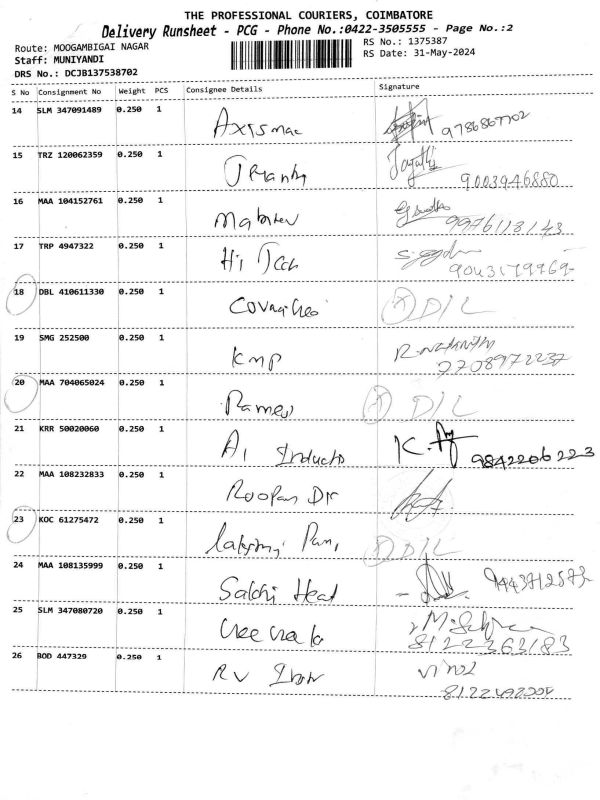 THE PROFESSIONAL COURIERS, COIMBATORE
Delivery Runsheet - PCG - Phone No.:0422-3505555 - Page No.:2
Route: MOOGAMBIGAI NAGAR
RS No.: 1375387
Staff: MUNIYANDI
RS Date: 31-May-2024
DRS No.: DCJB137538702
S No Consignment No Weight PCS Consignee Details Signature
14 SLM 347091489 0.250 1 Axismac 9786867702
15 TRZ 120062359 0.250 1 9003946880
16 MAA 104152761 0.250 1
17 TRP 4947322 0.250 1 Hi Tech
18 DBL 410611330 0.250 1 D/L
19 SMG 252500 0.250 1 Kmp 7708972237
20 MAA 704065024 0.250 1 Ramesh D/L
21 KRR 50020060 0.250 1 9842206223
22 MAA 108232833 0.250 1 Roopan
23 KOC 61275472 0.250 1 D/L
24 MAA 108135999 0.250 1 Heat
25 SLM 347080720 0.250 1 8122363183
26 BOD 447329 0.250 1 RV